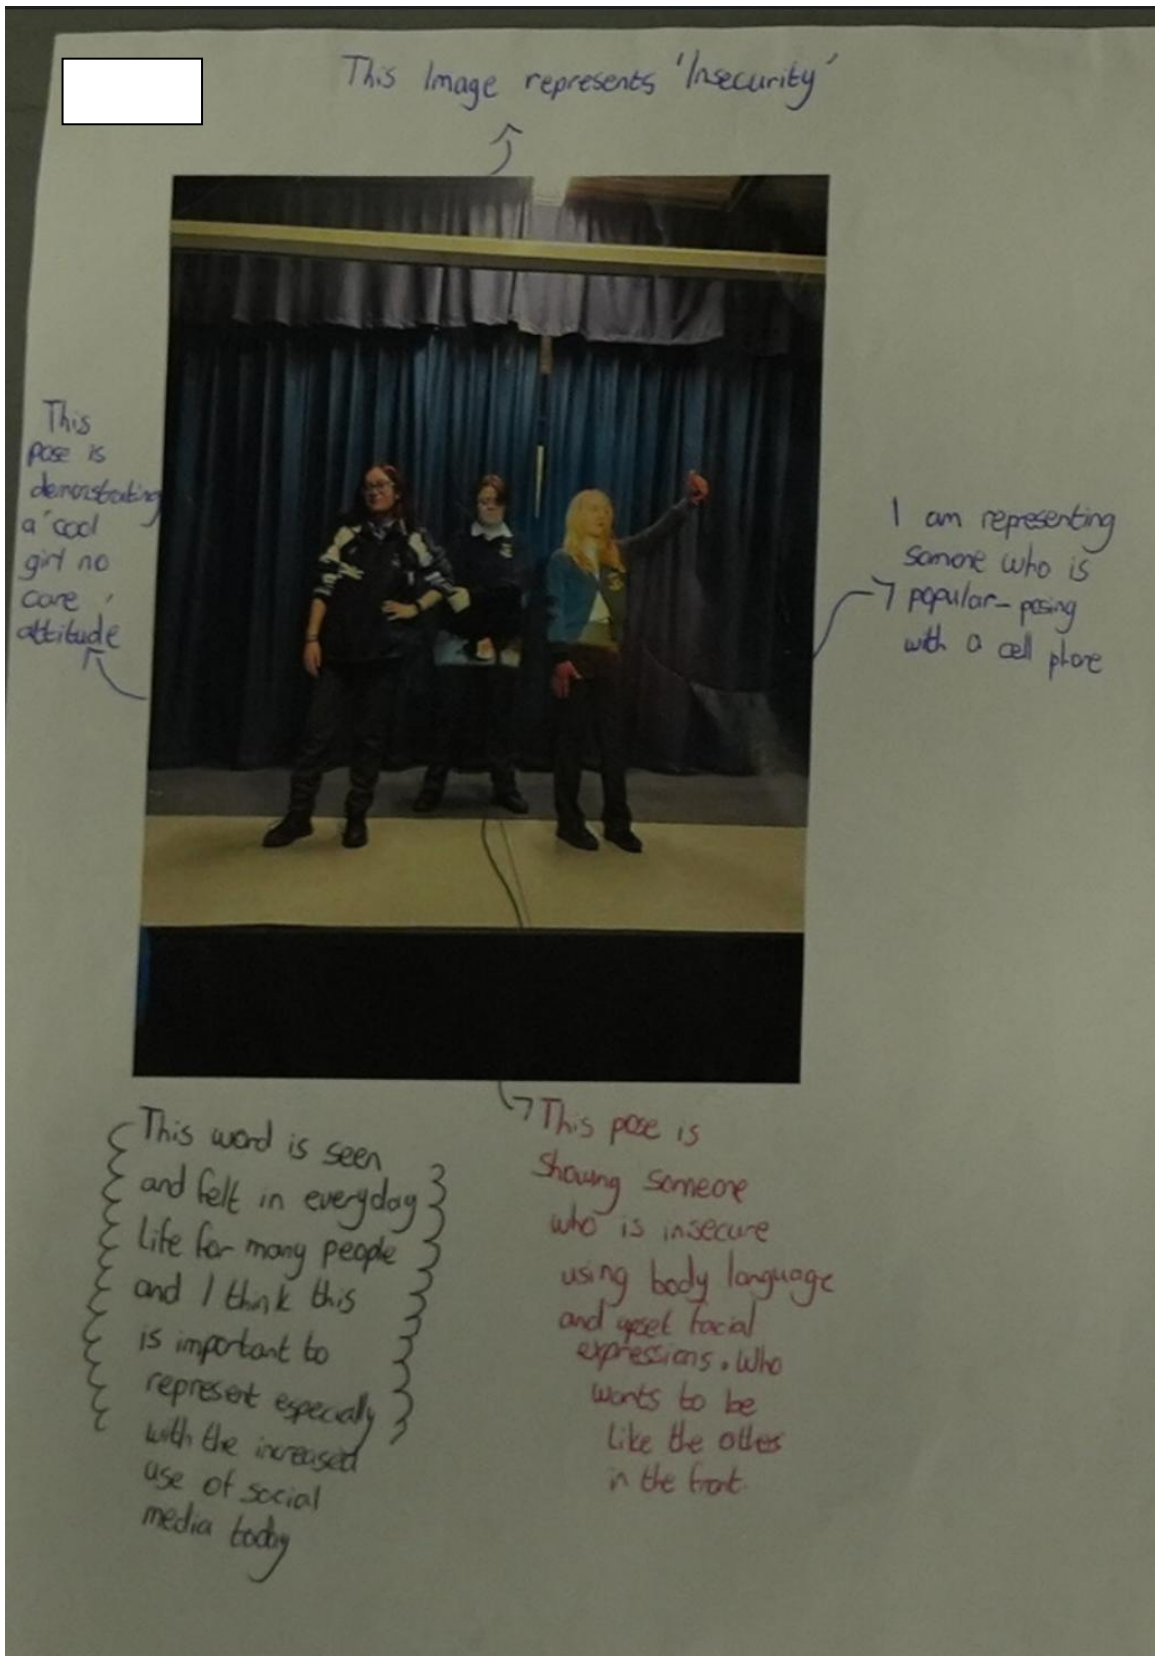 This Image represents 'Insecurity'
This
pose is
demonstrating
a 'cool
girl no
care'
attitude
I am representing
somone who is
popular - posing
with a cell phone
This word is seen
and felt in everyday
life for many people
and I think this
is important to
represent especially
with the increased
use of social
media today
This pose is
showing someone
who is insecure
using body language
and upset facial
expressions. Who
wants to be
like the others
in the front.